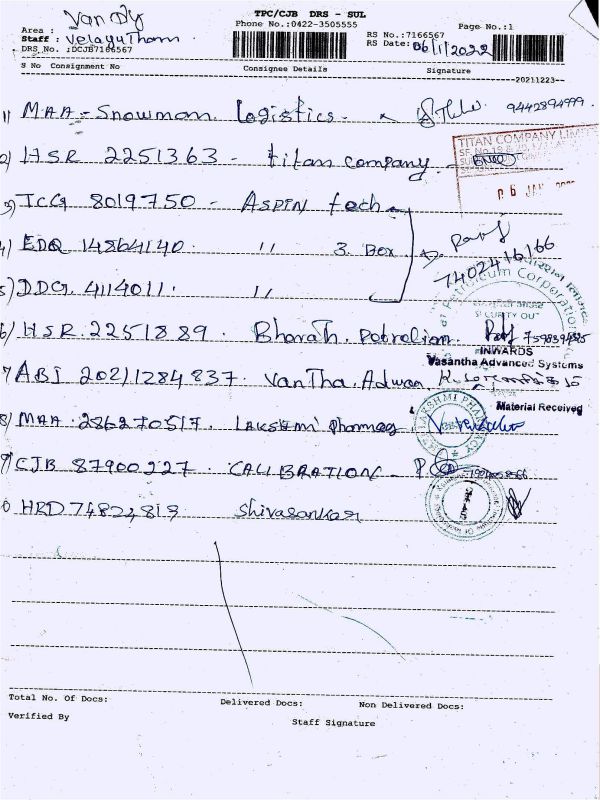 TPC/CJB DRS - SUL
Phone No.:0422-3505555 Page No.:1
Area :
Staff : Velayutham
DRS No. :DCJB7166567
RS No.:7166567
RS Date: 06/1/2022
S No Consignment No Consignee Details Signature
20211223
1) MAA - Snowman Logistics. 9442894999.
2) HSR 2251363 - titan company
TITAN COMPANY LIMI
3) TCG 8019750 - ASPIN tech
4) EDQ 14864140 " 3 Box
7402416166
5) DDG. 4114011. "
Petroleum Corporation
SECURITY OUT
6) HSR. 2251889 Bharath. Petroliam.
INWARDS
Vasantha Advanced Systems
7 ABJ 20211284837. VanTha. Adwan
Material Received
8) MAA. 286270517. LAKSHMI Pharmacy
LAKSHMI PHARMACY
9) CJB 87900227. CALIBRATION -
HRD 74824819 Shivasankar
Total No. Of Docs: Delivered Docs: Non Delivered Docs:
Verified By Staff Signature